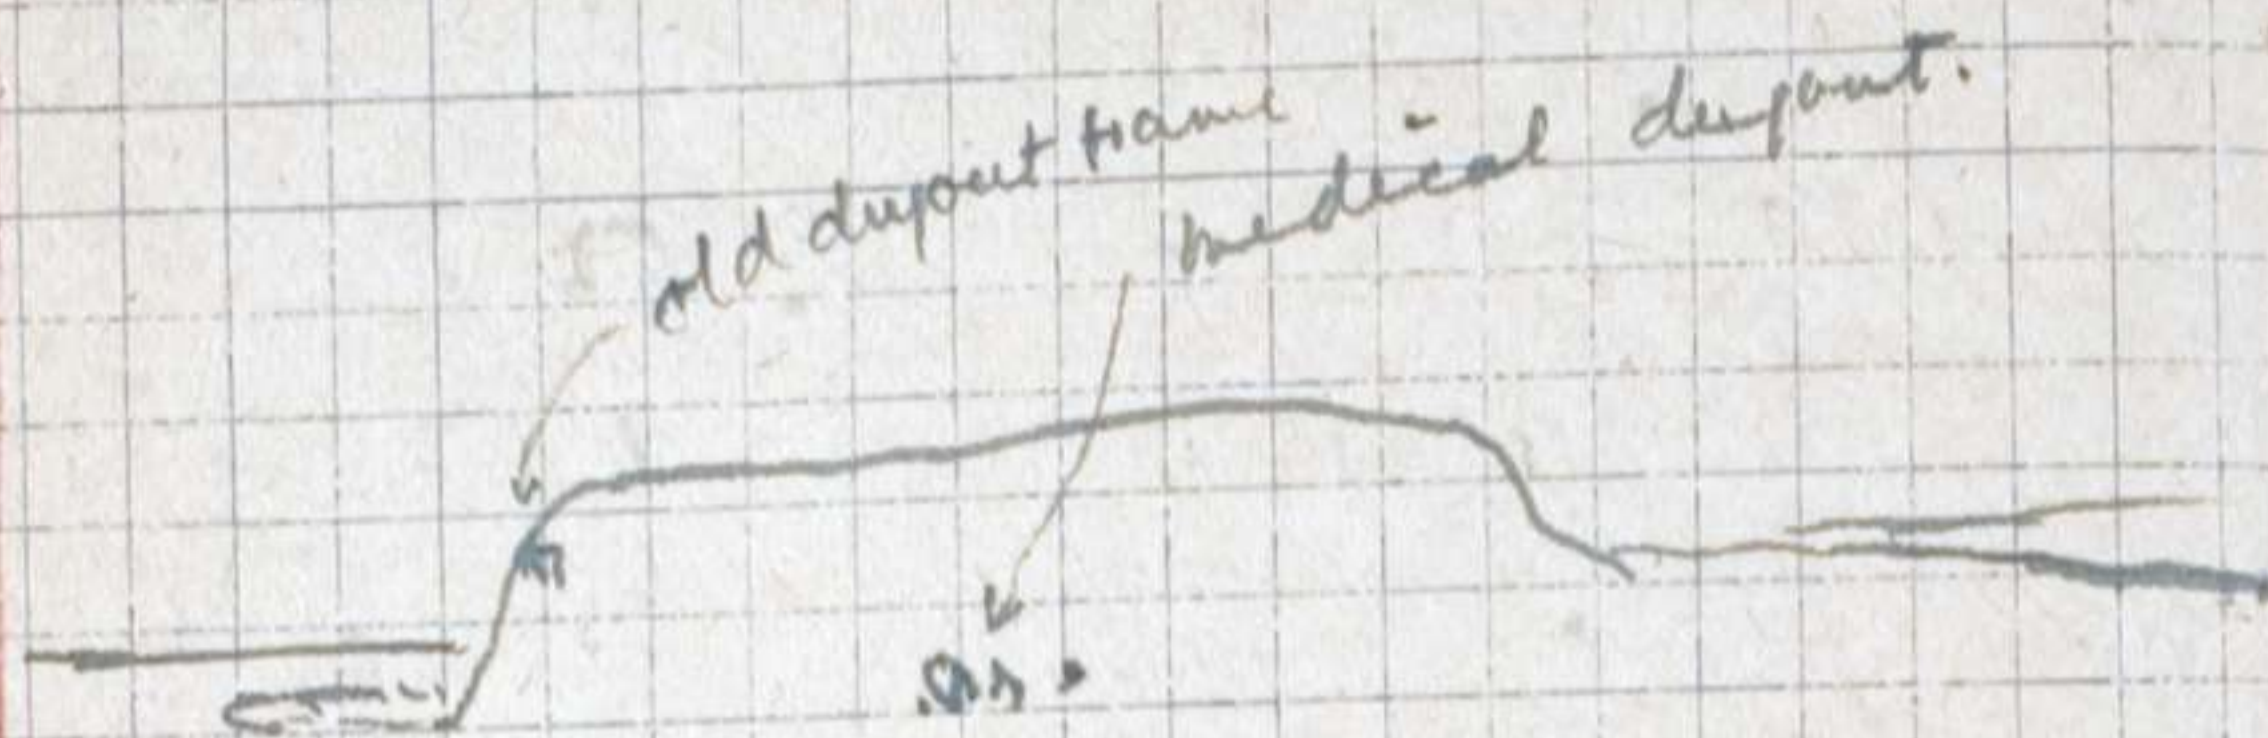 old dugout frame
medical dugout.